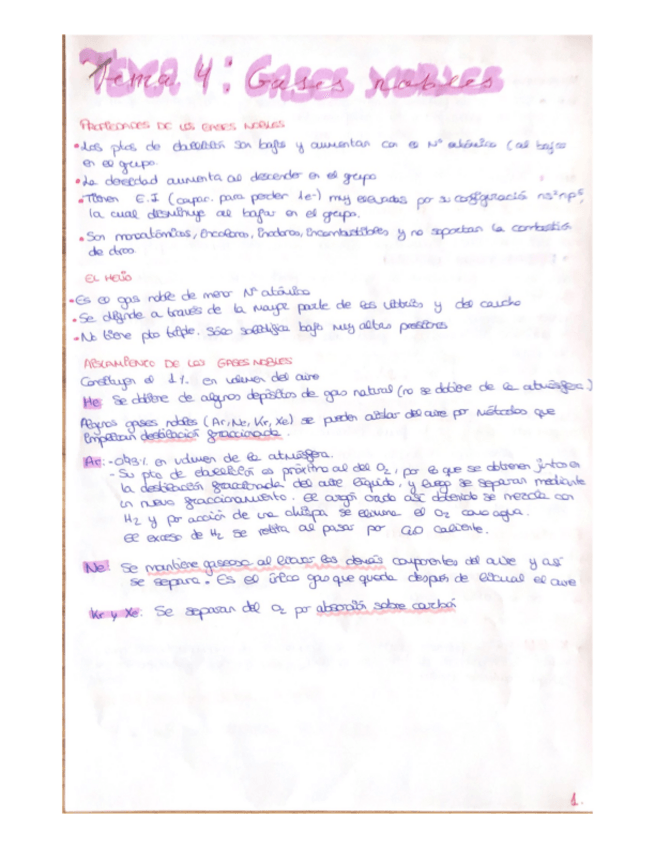 Tema 4: Gases nobles
PROPIEDADES DE LOS GASES NOBLES
• Los ptos de ebullición son bajos y aumentan con el Nº atómico (al bajar
en el grupo.
• La densidad aumenta al descender en el grupo
• Tienen E.I (para perder 1e-) muy elevadas por su configuració ns²np⁶,
la cual disminuye al bajar en el grupo.
• Son monoatómicos, incoloros, inodoros, incombustibles y no soportan la combustión
de otros
EL HELIO
• Es el gas noble de menor Nº atómico
• Se difunde a través de la mayor parte de los vidrios y del caucho
• No tiene pto triple. Sólo solidifica bajo muy altas presiones
AISLAMIENTO DE LOS GASES NOBLES
Constituyen el 1% en volumen del aire
He: Se obtiene de algunos depósitos de gas natural (no se obtiene de la atmósfera)
Algunos gases nobles (Ar, Ne, Kr, Xe) se pueden aislar del aire por métodos que
emplean destilación fraccionada.
Ar: - 0,93% en volumen de la atmósfera.
- Su pto de ebullición es próximo al del O₂, por lo que se obtienen juntos en
la destilación fraccionada del aire líquido, y luego se separan mediante
un nuevo fraccionamiento. El argón crudo así obtenido se mezcla con
H₂ y por acción de una chispa se elimina el O₂ como agua.
El exceso de H₂ se retira al pasar por CuO caliente.
Ne: Se mantiene gaseoso al licuar los demás componentes del aire y así
se separa. Es el único gas que queda después de licuar el aire
Kr y Xe: Se separan del O₂ por absorción sobre carbón
1.